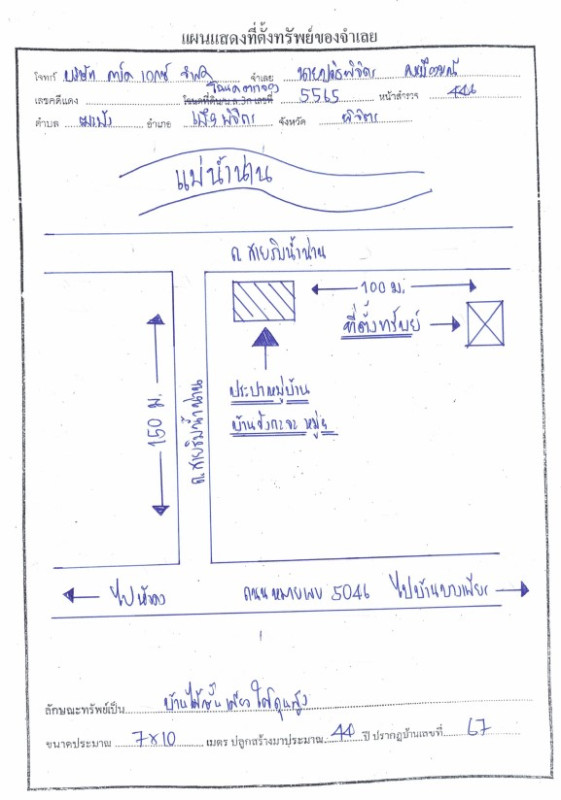 แผนแสดงที่ตั้งทรัพย์ของจำเลย
โจทก์ บริษัท เอกซ์ จำกัด จำเลย
เลขคดีแดง โฉนดที่ดิน/น.ส.3ก เลขที่ 5565 หน้าสำรวจ 444
ตำบล ฆะมัง อำเภอ เมืองพิจิตร จังหวัด พิจิตร
แม่น้ำน่าน
ถ.สายริมน้ำน่าน
100 ม.
ที่ตั้งทรัพย์
ประปาหมู่บ้าน
บ้าน หมู่
150 ม.
ถ.สายริมน้ำน่าน
ไป ถนนหมายเลข 5046 ไปบ้าน
ลักษณะทรัพย์เป็น บ้านไม้ชั้นเดียวใต้ถุนสูง
ขนาดประมาณ 7x10 เมตร ปลูกสร้างมาประมาณ 44 ปี ปรากฏบ้านเลขที่ 67